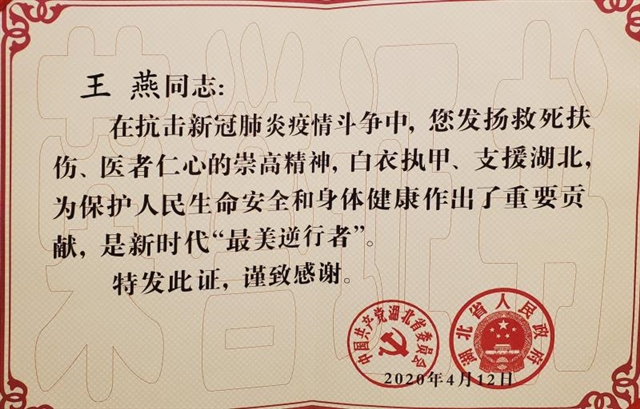 王燕同志：
在抗击新冠肺炎疫情斗争中，您发扬救死扶
伤、医者仁心的崇高精神，白衣执甲、支援湖北，
为保护人民生命安全和身体健康作出了重要贡
献，是新时代“最美逆行者”。
特发此证，谨致感谢。
中国共产党湖北省委员会
湖北省人民政府
2020年4月12日
荣誉证书